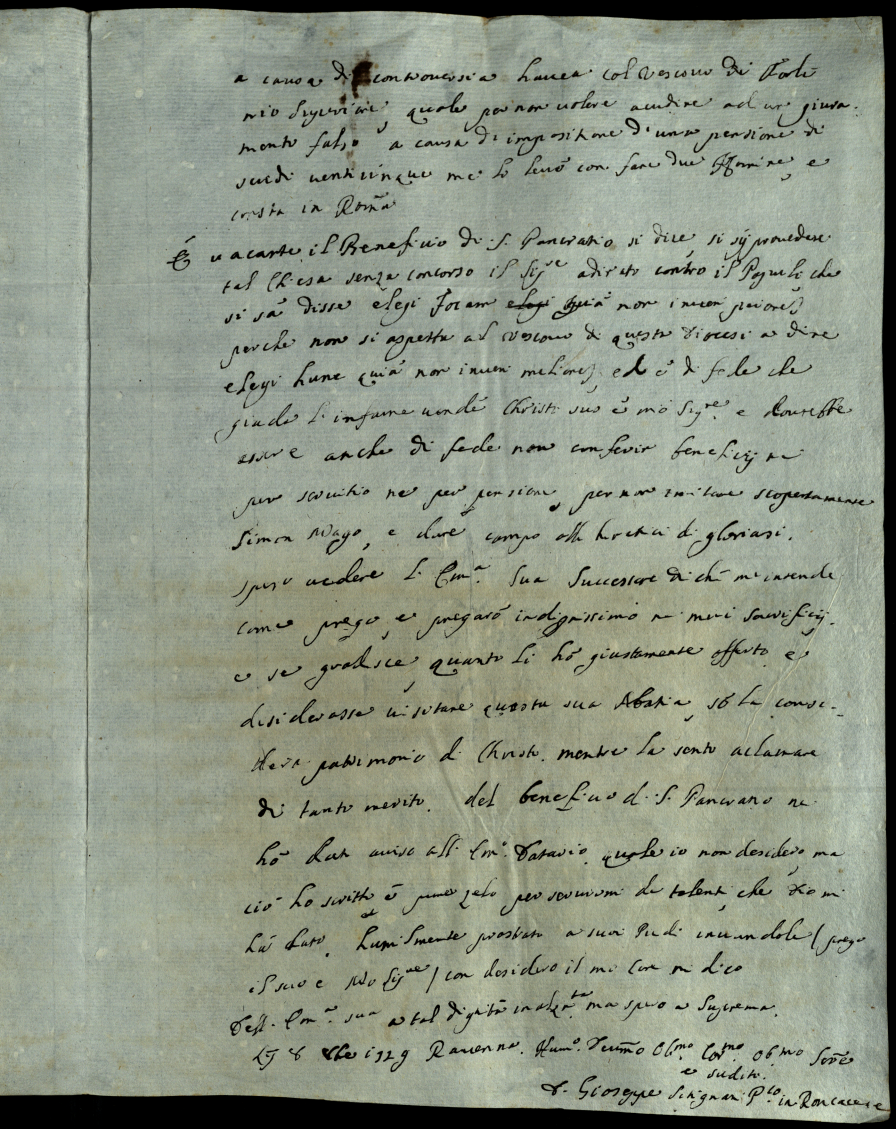 a causa di controversia havea col Vescovo di Forlì
mio Superiore, quale per non volere acudire ad un giura-
mento falso a causa di impositione d'una pensione di
scudi venticinque me lo levò con fare due Homine, e
costa in Roma
È vacante il Beneficio di S. Pancratio si dice, si sij provedere
tal Chiesa senza concorso il Sig.re adirato contro il Popoli che
si sa disse elegi Jocam elegi quia non inveni peiorẽ
perche non si aspetta al Vescovo di questa Diocesi a dire
elegi hunc quia non inveni meliorẽ, ed è di fede che
giuda l'infame vendè Christo suo e mio Sig.re e dourebbe
essere anche di fede non conferir beneficij ne
per servitio ne per pensione, per non imitare scopertamente
Simon Mago, e dare campo alli heretici di gloriasi.
spero vedere l'Em.a Sua Successore di chi me intende
come prego, e pregarò indignissimo ne miei sacrificij.
e se gradisce quanto li hò giustamente offerto e
desiderasse visitare questa sua Abatia, so la consi-
dera patrimonio di Christo, mentre la sento aclamare
di tanto merito. del beneficio di S. Pancratio ne
hò dato aviso all' Em.o Datario quale io non desidero ma
ciò ho scritto è puro zelo per servirmi de talenti che Dio mi
hà dato, et humilmente prostrato a suoi Piedi inchinandole (prego
il suo e mio Sig.re) con desiderio il mi core mi dico
Dell' Em.a sua a tal dignità inalz.ta ma spero a Suprema.
Li 8 Xbre 1729 Ravenna. Hum.o Devmo Ob.mo Ser.re
e sudito.
D. Gioseppe P.co in Roncaceie